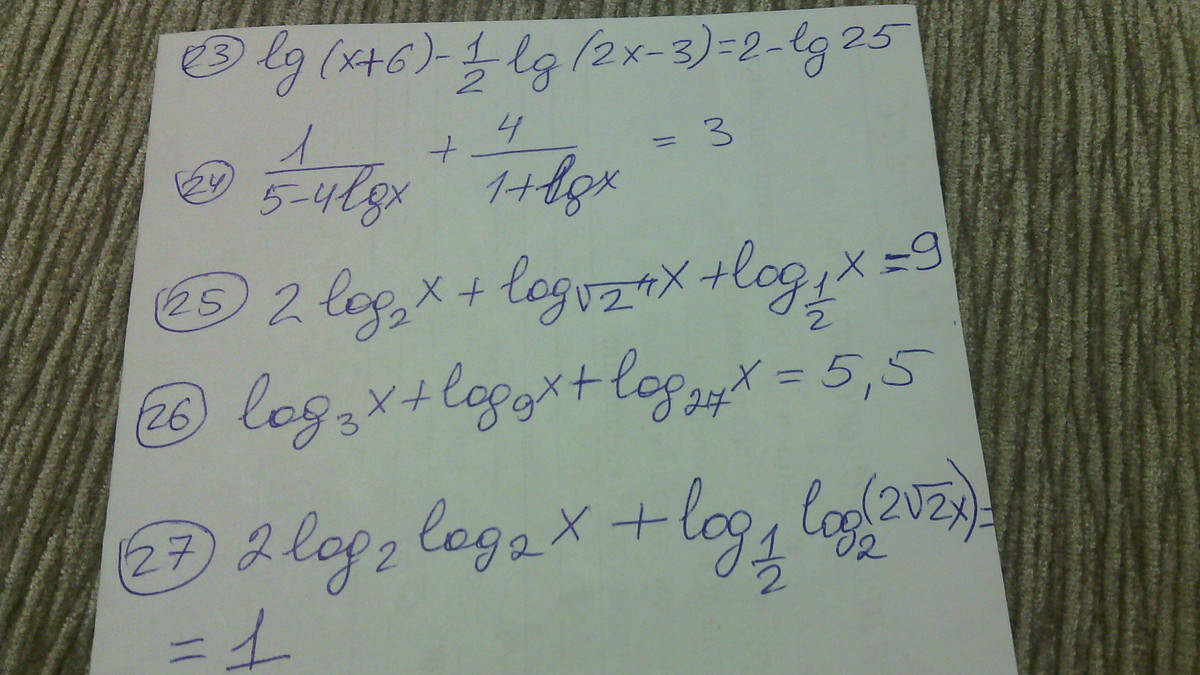 23 lg(x+6)-1/2 lg(2x-3)=2-lg25
24 1/(5-4lgx) + 4/(1+lgx) = 3
25 2log₂x+log_√2 x+log_1/2 x=9
26 log₃x+log₉x+log₂₇x=5,5
27 2log₂log₂x+log_1/2 log₂(2√2x)=
=1